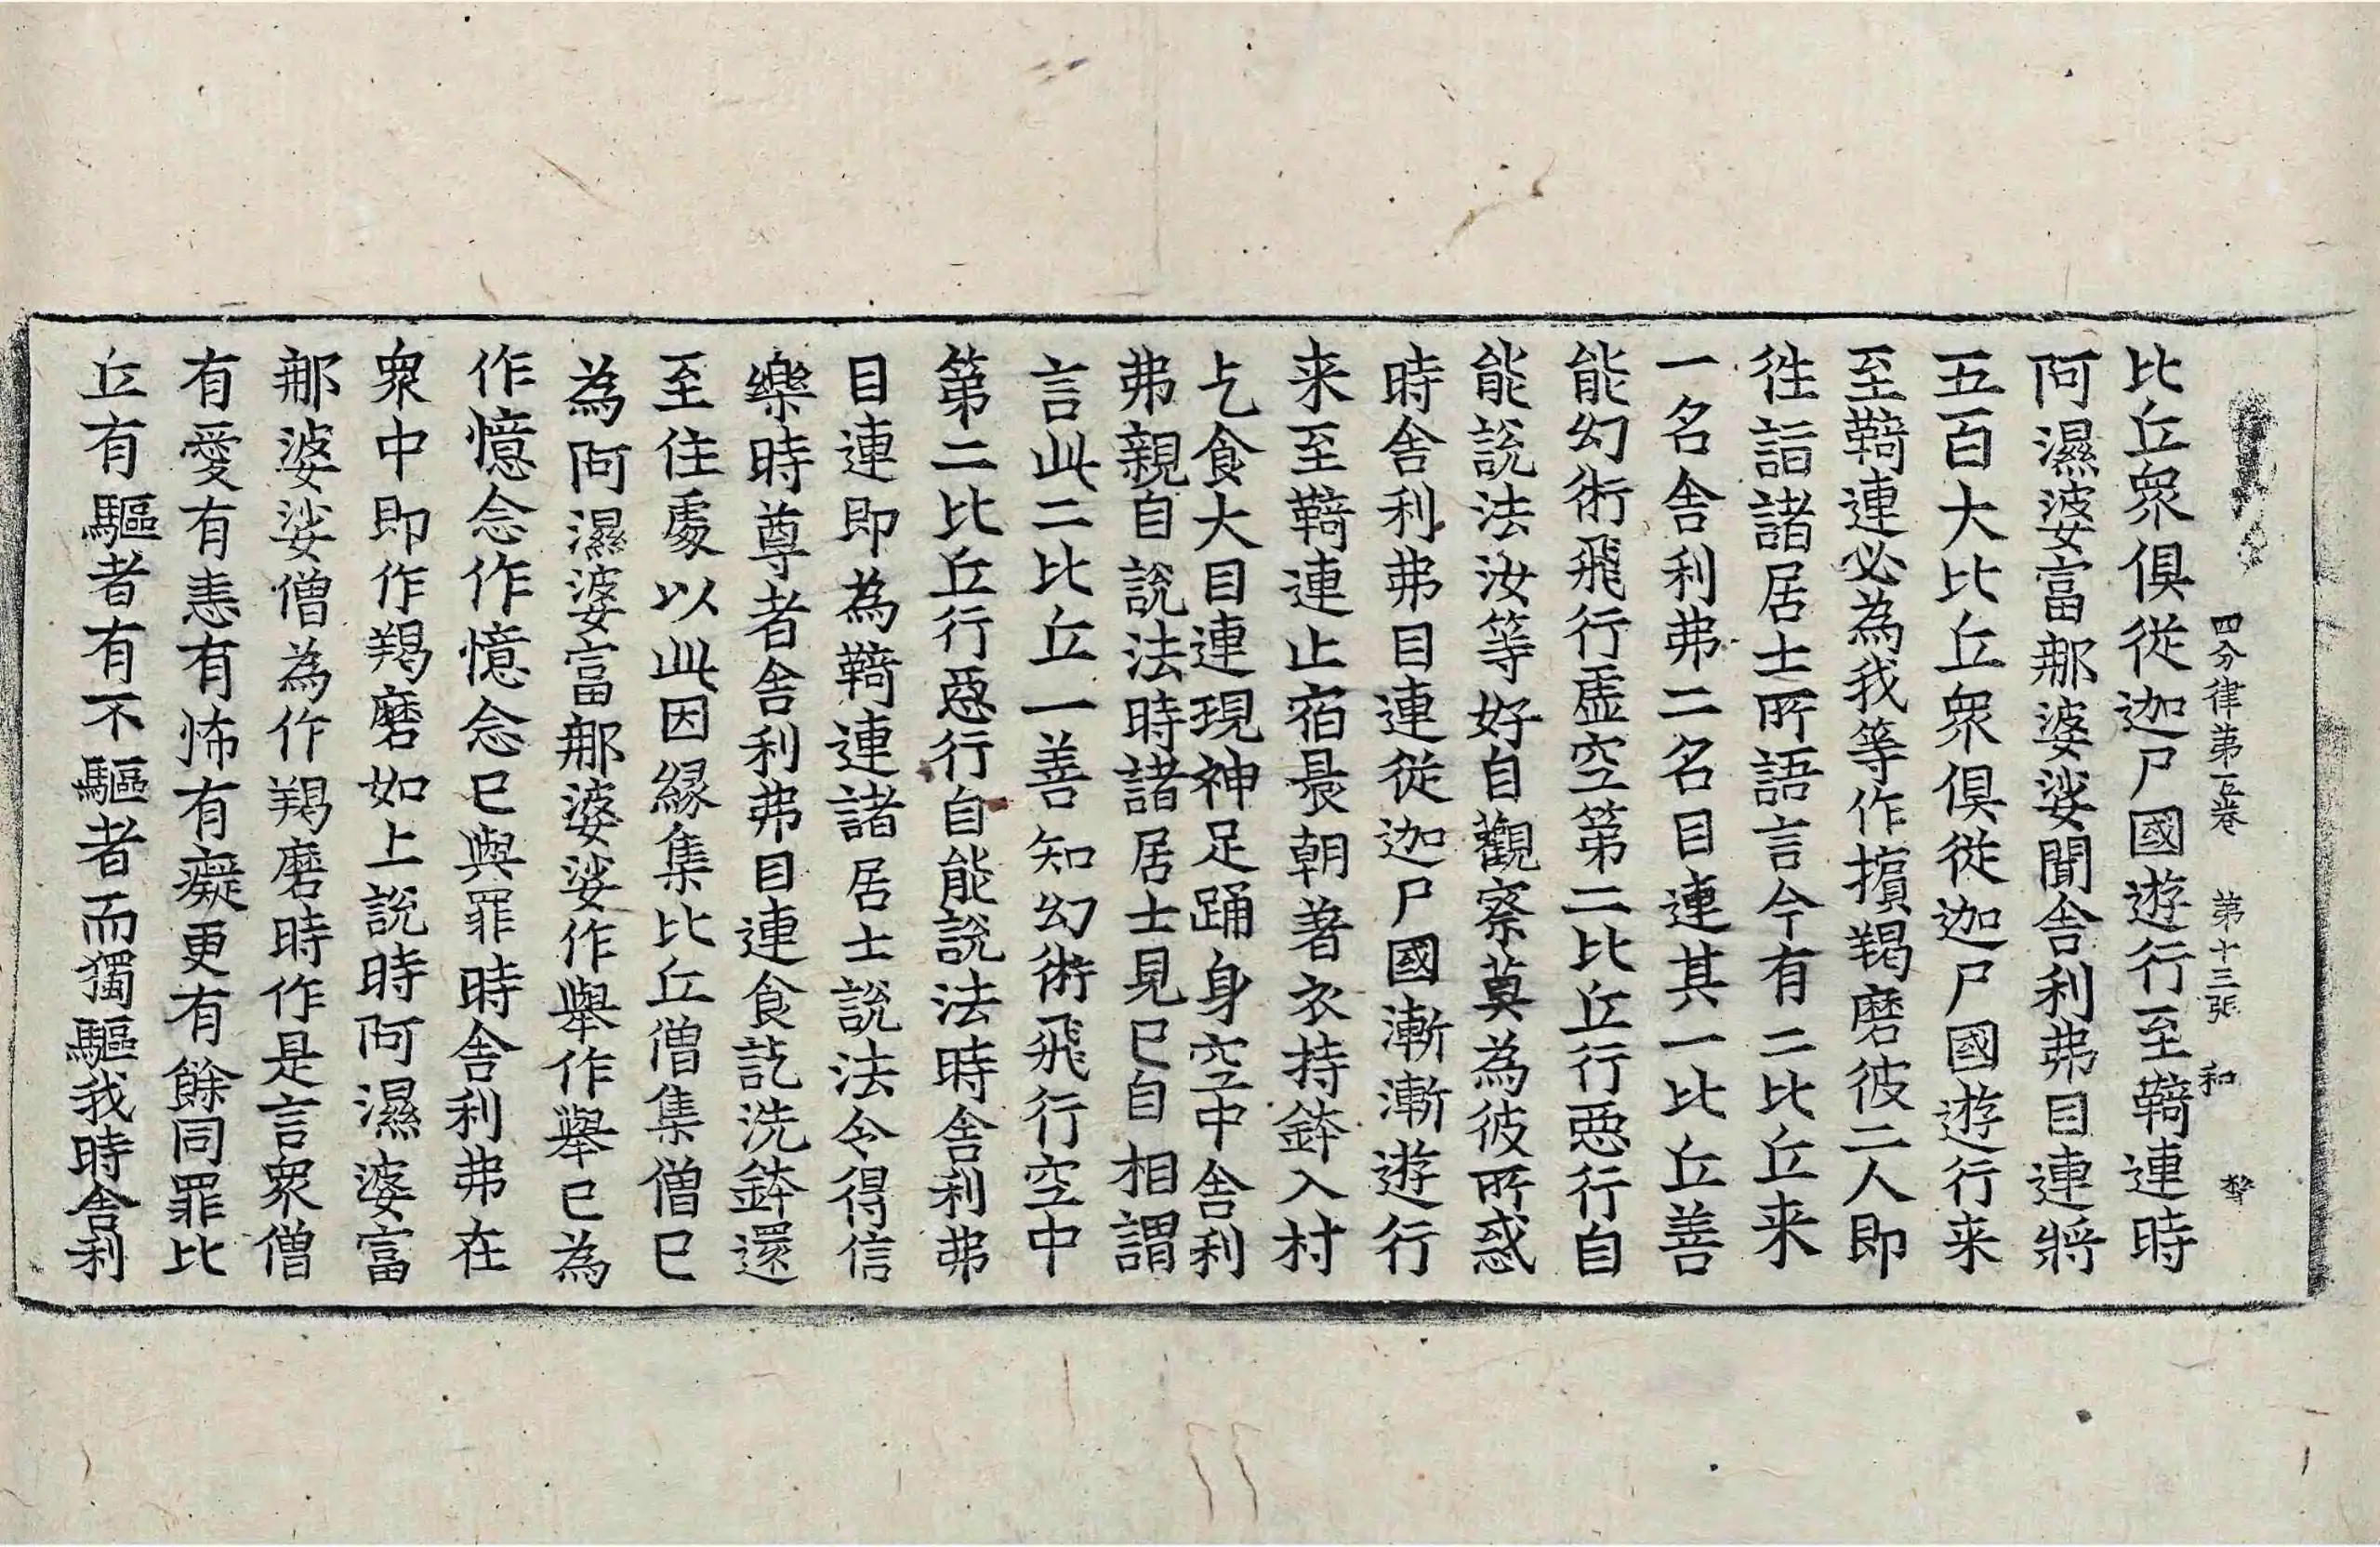 四分律第五卷　第十三張　和
比丘衆俱從迦尸國遊行至鞞連時
阿濕婆富那婆娑聞舍利弗目連將
五百大比丘衆俱從迦尸國遊行来
至鞞連必為我等作擯羯磨彼二人即
徃詣諸居士所語言今有二比丘来
一名舍利弗二名目連其一比丘善
能幻術飛行虛空第二比丘行惡行自
能說法汝等好自觀察莫為彼所惑
時舍利弗目連從迦尸國漸漸遊行
来至鞞連止宿晨朝著衣持鉢入村
乞食大目連現神足踊身空中舍利
弗親自說法時諸居士見已自相謂
言此二比丘一善知幻術飛行空中
第二比丘行惡行自能說法時舍利弗
目連即為鞞連諸居士說法令得信
樂時尊者舍利弗目連食訖洗鉢還
至住處以此因緣集比丘僧集僧已
為阿濕婆富那婆娑作舉作舉已為
作憶念作憶念已與罪時舍利弗在
衆中即作羯磨如上說時阿濕婆富
那婆娑僧為作羯磨時作是言衆僧
有愛有恚有怖有癡更有餘同罪比
丘有驅者有不驅者而獨驅我時舍利